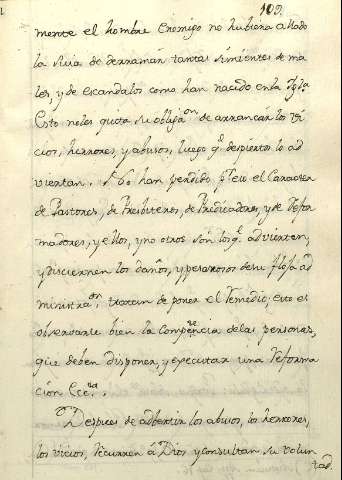 109.
mente el hombre enemigo no hubiera allado
la suia de derramar tantas simientes de ma
les, y de escandalos como han nacido en la Igla
Esto no les quita su obligaon de arrancar los vi
cios, herrores y abusos, luego qe despiertos lo ad
viertan. No han perdido pr eso el Caracter
de Pastores, de Presbiteros, de Predicadores, y de Refor
madores, y ellos, y no otros son los qe advierten,
y disciernen los daños, y perjuicios de su floja ad
ministraon, traten de poner el remedio, esto es
observarse bien la Competencia de las personas,
que deben disponer, y executar una reforma
cion Ecca.
Despues de advertir los abusos, los herrores,
los vicios, recurren á Dios y consultan su volun
tad.